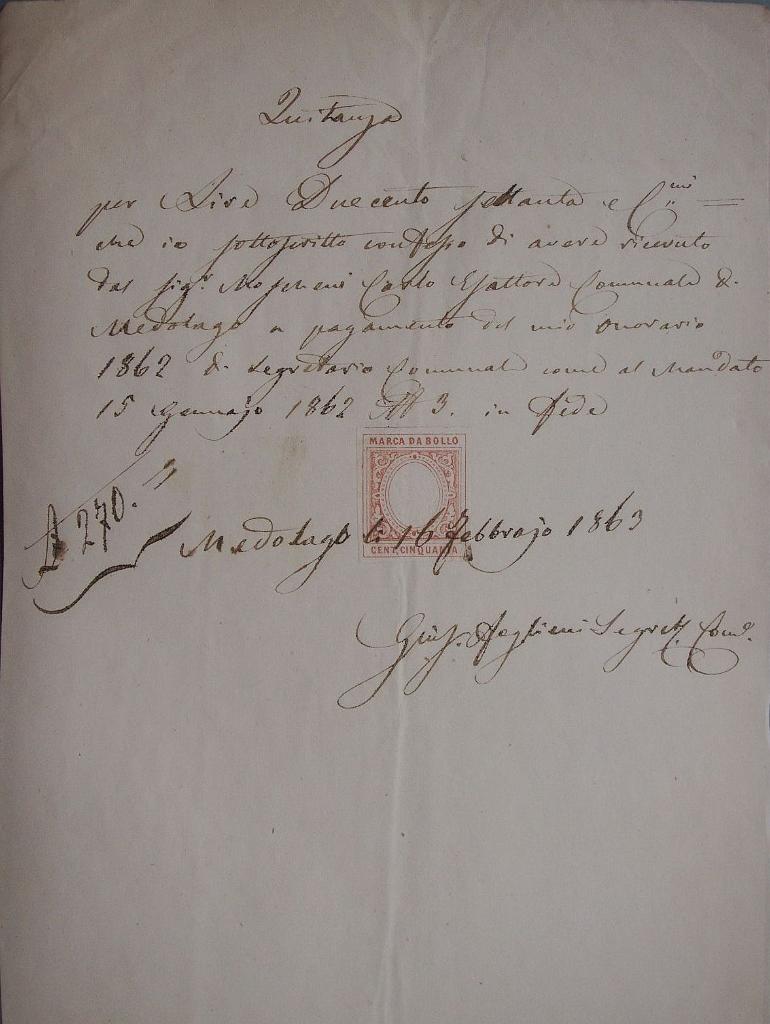 Quitanza
per Lire Duecento settanta e C.mi =
che io sottoscritto confesso di avere ricevuto
dal Sig.r Moscheni Carlo Esattore Comunale di
Medolago a pagamento del mio onorario
1862 di Segretario Comunale come al Mandato
15 Gennajo 1862 N 3. in fede
MARCA DA BOLLO
CENT. CINQUANTA
270. "
Medolago li 16 Febbrajo 1863
Gius. Segret. Com.